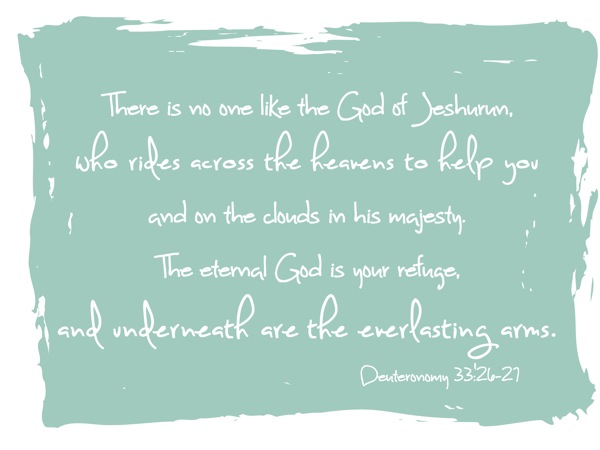 There is no one like the God of Jeshurun,
who rides across the heavens to help you
and on the clouds in his majesty.
The eternal God is your refuge,
and underneath are the everlasting arms.
Deuteronomy 33:26-27